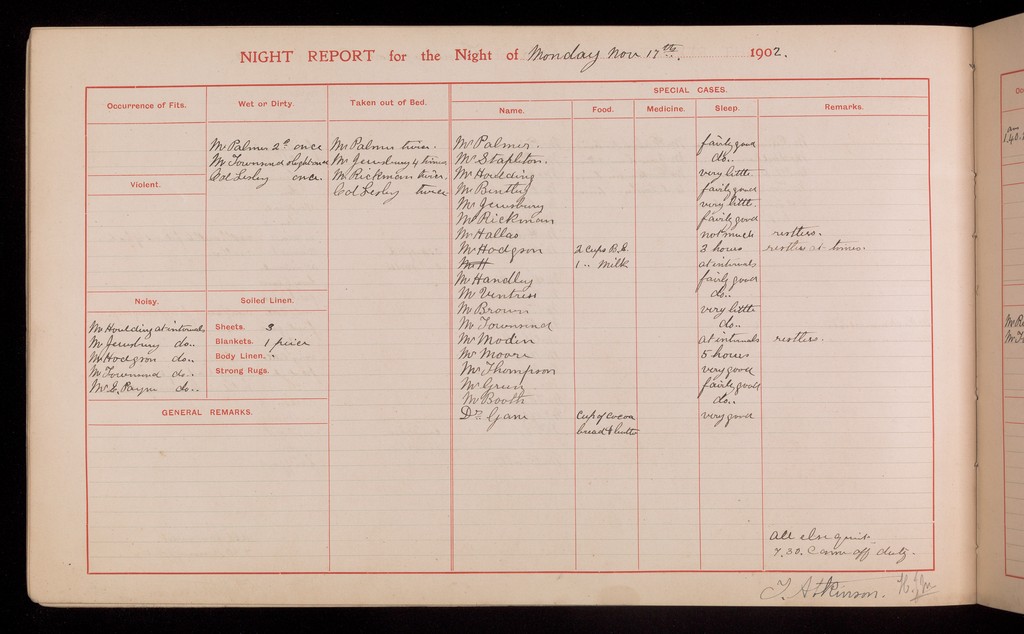 NIGHT REPORT for the Night of Monday Nov 17th. 1902.
SPECIAL CASES.
Occurrence of Fits. Wet or Dirty. Taken out of Bed. Name. Food. Medicine. Sleep. Remarks.
Mr Palmer once Mr Palmer twice. Mr Palmer. fairly good
Mr Townsend Mr Jewsbury 4 times Mr Stapleton. do..
Col Lesley once. Mr Rickman twice. Mr Houlding very little
Violent. Col Lesley twice Mr Bentley fairly good
Mr Jewsbury very little
Mr Rickman fairly good
Mr Hallas not much restless.
Mr Hodgson 2 cups B.t. 3 hours restless at times.
Mr H 1 .. milk at intervals
Mr Handley fairly good
Mr Ventress do..
Noisy. Soiled Linen. Mr Brown very little
Mr Houlding at intervals Sheets. 3 Mr Townsend do..
Mr Jewsbury do.. Blankets. 1 Mr Modin at intervals restless.
Mr Hodgson do.. Body Linen. Mr Moore 5 hours
Mr Townsend do.. Strong Rugs. Mr Thompson very good
Mr S. Payne do.. Mr Green fairly good
Mr Booth do..
GENERAL REMARKS. Dr. Gane Cup of cocoa very good
bread & butter
All else quiet
7.30. Came off duty.
T. Atkinson.